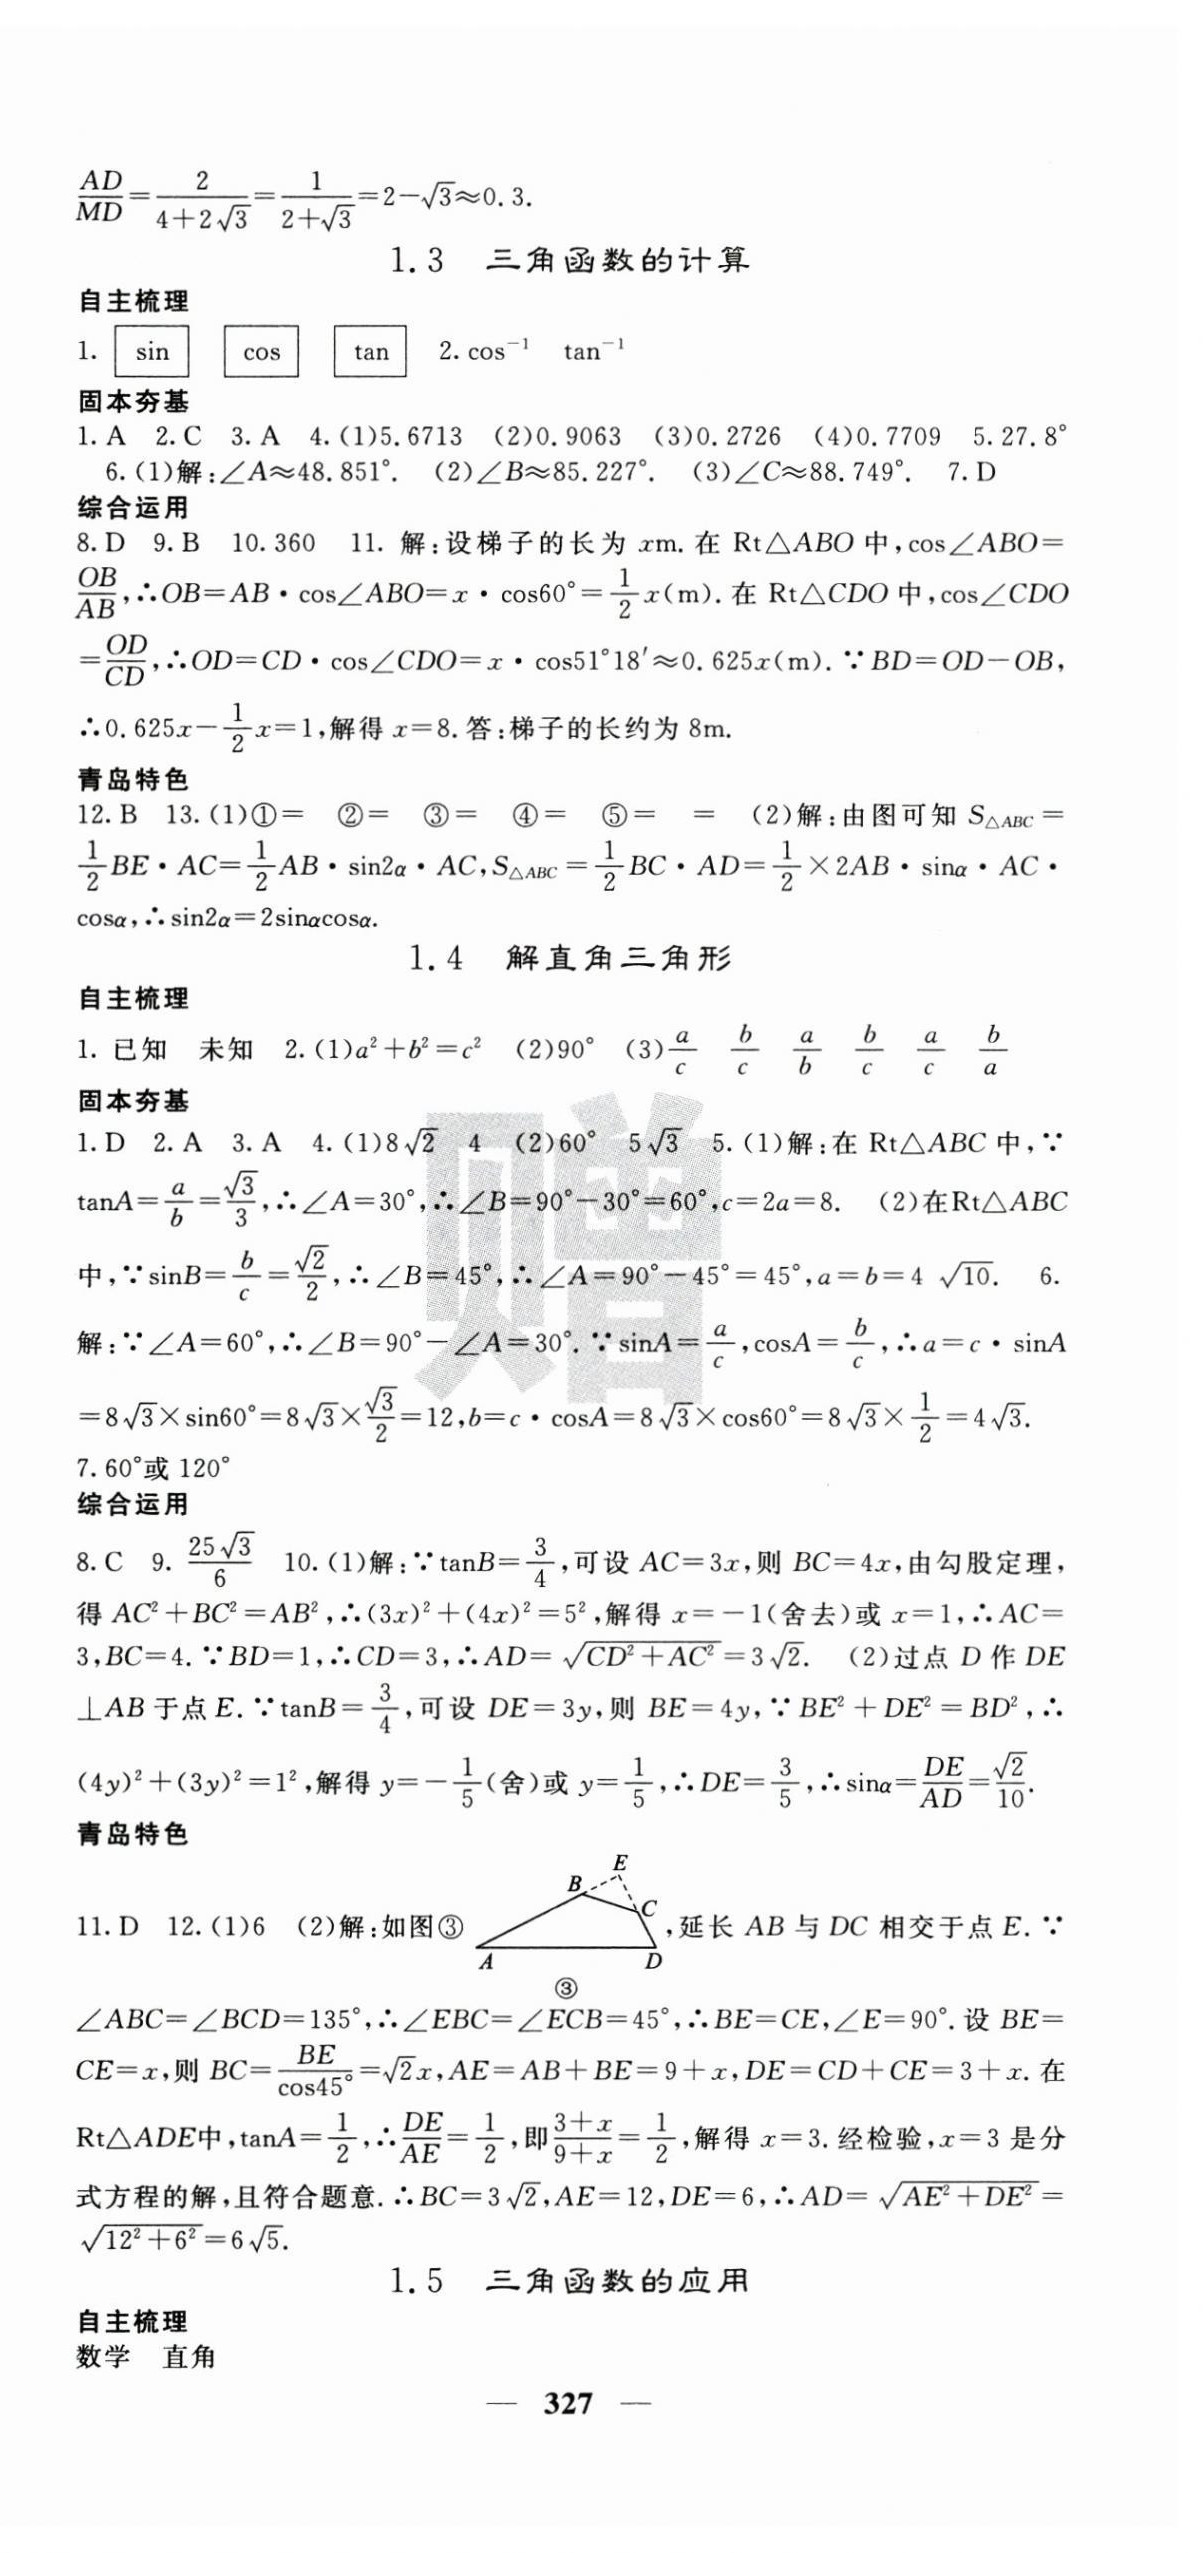 AD/MD=2/(4+2√3)=1/(2+√3)=2-√3≈0.3.
1.3 三角函数的计算
自主梳理
1. sin cos tan 2. cos⁻¹ tan⁻¹
固本夯基
1. A 2. C 3. A 4. (1)5.6713 (2)0.9063 (3)0.2726 (4)0.7709 5. 27.8°
6. (1)解:∠A≈48.851°. (2)∠B≈85.227°. (3)∠C≈88.749°. 7. D
综合运用
8. D 9. B 10. 360 11. 解:设梯子的长为 xm. 在 Rt△ABO 中,cos∠ABO=
OB/AB,∴OB=AB·cos∠ABO=x·cos60°=1/2x(m). 在 Rt△CDO 中,cos∠CDO
=OD/CD,∴OD=CD·cos∠CDO=x·cos51°18′≈0.625x(m). ∵BD=OD-OB,
∴0.625x-1/2x=1,解得 x=8. 答:梯子的长约为 8m.
青岛特色
12. B 13. (1)①= ②= ③= ④= ⑤= = (2)解:由图可知 S△ABC=
1/2BE·AC=1/2AB·sin2α·AC,S△ABC=1/2BC·AD=1/2×2AB·sinα·AC·
cosα,∴sin2α=2sinαcosα.
1.4 解直角三角形
自主梳理
1. 已知 未知 2. (1)a²+b²=c² (2)90° (3)a/c b/c a/b b/c a/c b/a
固本夯基
1. D 2. A 3. A 4. (1)8√2 4 (2)60° 5√3 5. (1)解:在 Rt△ABC 中,∵
tanA=a/b=√3/3,∴∠A=30°,∴∠B=90°-30°=60°,c=2a=8. (2)在Rt△ABC
中,∵sinB=b/c=√2/2,∴∠B=45°,∴∠A=90°-45°=45°,a=b=4√10. 6.
解:∵∠A=60°,∴∠B=90°-∠A=30°. ∵sinA=a/c,cosA=b/c,∴a=c·sinA
=8√3×sin60°=8√3×√3/2=12,b=c·cosA=8√3×cos60°=8√3×1/2=4√3.
7. 60°或 120°
综合运用
8. C 9. 25√3/6 10. (1)解:∵tanB=3/4,可设 AC=3x,则 BC=4x,由勾股定理,
得 AC²+BC²=AB²,∴(3x)²+(4x)²=5²,解得 x=-1(舍去)或 x=1,∴AC=
3,BC=4. ∵BD=1,∴CD=3,∴AD=√(CD²+AC²)=3√2. (2)过点 D 作 DE
⊥AB 于点 E. ∵tanB=3/4,可设 DE=3y,则 BE=4y,∵BE²+DE²=BD²,∴
(4y)²+(3y)²=1²,解得 y=-1/5(舍)或 y=1/5,∴DE=3/5,∴sinα=DE/AD=√2/10.
青岛特色
E
B
C
11. D 12. (1)6 (2)解:如图③ ,延长 AB 与 DC 相交于点 E. ∵
A D
③
∠ABC=∠BCD=135°,∴∠EBC=∠ECB=45°,∴BE=CE,∠E=90°. 设 BE=
CE=x,则 BC=BE/cos45°=√2x,AE=AB+BE=9+x,DE=CD+CE=3+x. 在
Rt△ADE中,tanA=1/2,∴DE/AE=1/2,即(3+x)/(9+x)=1/2,解得 x=3. 经检验,x=3 是分
式方程的解,且符合题意. ∴BC=3√2,AE=12,DE=6,∴AD=√(AE²+DE²)=
√(12²+6²)=6√5.
1.5 三角函数的应用
自主梳理
数学 直角
— 327 —
赠